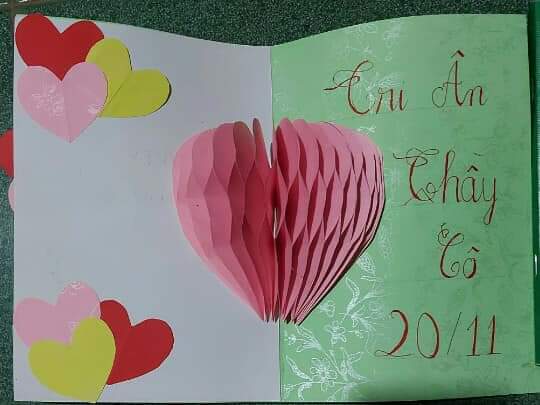 Tri Ân
Thầy
Cô
20/11